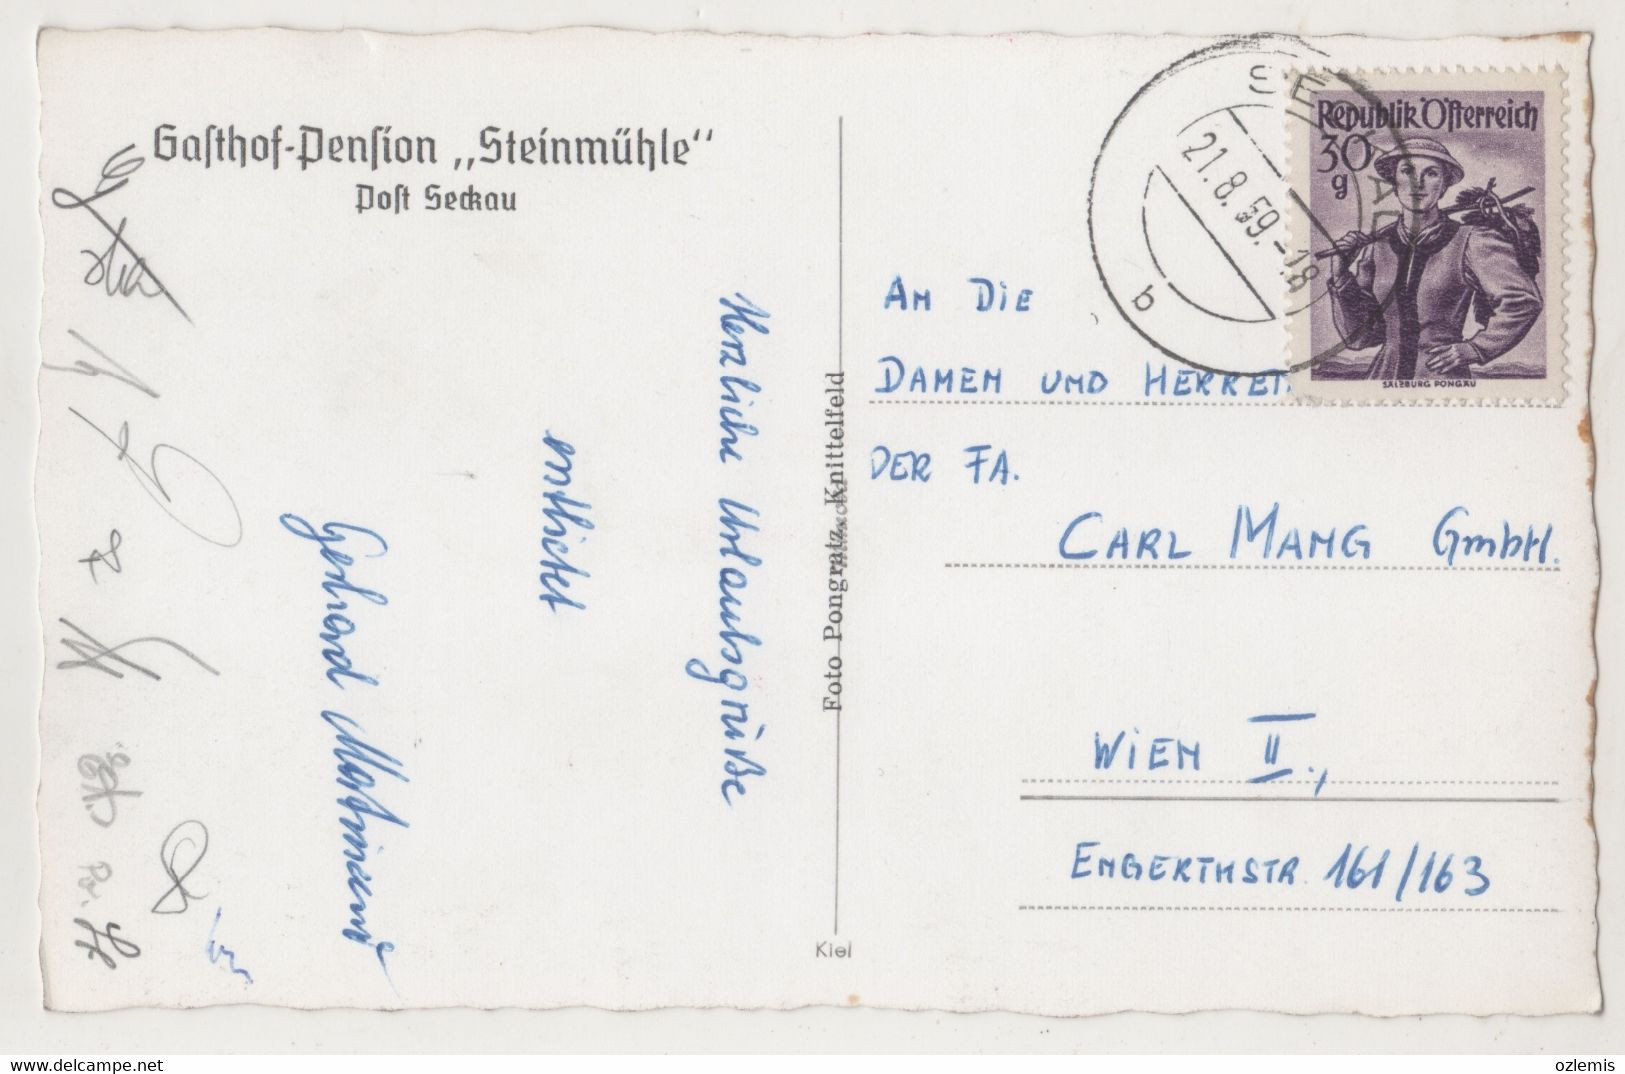 Gasthof-Pension „Steinmühle“
Post Seckau
Herzliche Urlaubsgrüße
entbietet
Gerhard
Foto Pongratz, Knittelfeld
Kiel
SECKAU
21.8.59.-18
b
Republik Österreich
30
g
SALZBURG PONGAU
AN DIE
DAMEN UND HERREN
DER FA.
CARL MANG GmbH.
WIEN II.,
ENGERTHSTR. 161/163
ozlemis